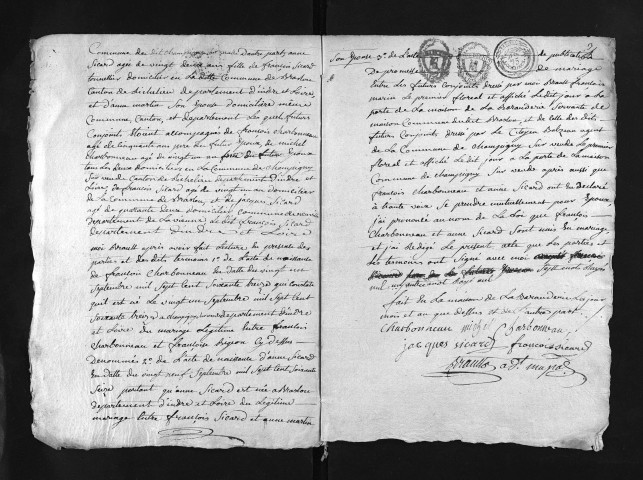 Commune de dit champigny sur veude d'autre part, anne
Sicard agée de vingt deux ans fille de françois Sicard
tonnellier domicilier en la ditte Commune de Braslou
Canton de Richelieu departement d'indre et Loire,
et d'anne martin Son Epouse domiciliaire même
Commune, Canton, et departement. Les quel futurs
Conjoints étoient accompagnés de françois Charbonneau
agé de cinquante ans pere du futur Epoux, de michel
Charbonneau agé de vingt un ans frere du futur Epoux
tous les deux domiciliers en la Commune de champigny
Sur veude Canton de Richelieu departement d'indre et
Loire, de françois Sicard agé de vingt un ans domicilier
de la Commune de Braslou, et de jacques Sicard
agé de quarante deux domicilier Commune de
departement de la vienne le dit françois Sicard
departement d'indre et Loire
moi Brault apres avoir fait Lecture en presence des
parties et des dits temoins 1° de L'acte de naissance
de françois Charbonneau en datte du vingt un
Septembre mil Sept Cent Soixante treize qui constate
qu'il est né Le vingt un Septembre mil Sept Cent
Soixante treize a champigny departement d'indre
et Loire du mariage Légitime entre francois
Charbonneau et françoise pigeon Cy dessus
Denommés 2° de L'acte de naissance d'anne Sicard
en datte du vingt neuf Septembre mil Sept Cent Soixante
Seize portant qu'anne Sicard est née a Braslou
departement d'indre et Loire du Légitime
mariage entre françois Sicard et anne martin
Son Epouse 3° de L'acte de publication
De promesse de mariage
Entre Les futurs Conjoints dressé par moi Brault
le premier floreal et affiché Le dit jour a La
porte de La maison de La Baranderie Servante de
maison Commune du dit Braslou, et de Celle des dits
futurs Conjoints dressé par Le Citoyen agent
de La Commune de Champigny Sur veude Le premier
floreal et affiché Le dit jour a La porte de La maison
Commune de champigny Sur veude après aussi que
françois Charbonneau et anne Sicard ont eu declaré
a haute voix Se prendre mutuellement pour Epoux,
j'ai prononcé au nom de La Loi que françois
Charbonneau et anne Sicard Sont unis en mariage
et j'ai redigé Le present acte que Les parties et
Les temoins ont Signé avec moi
Sept mots rayés
nul
fait En La maison de La Baranderie Les jour
mois et an que dessus et de L'autre part.
Charbonneau michel Charbonneau
jacques sicard françois sicard
Brault